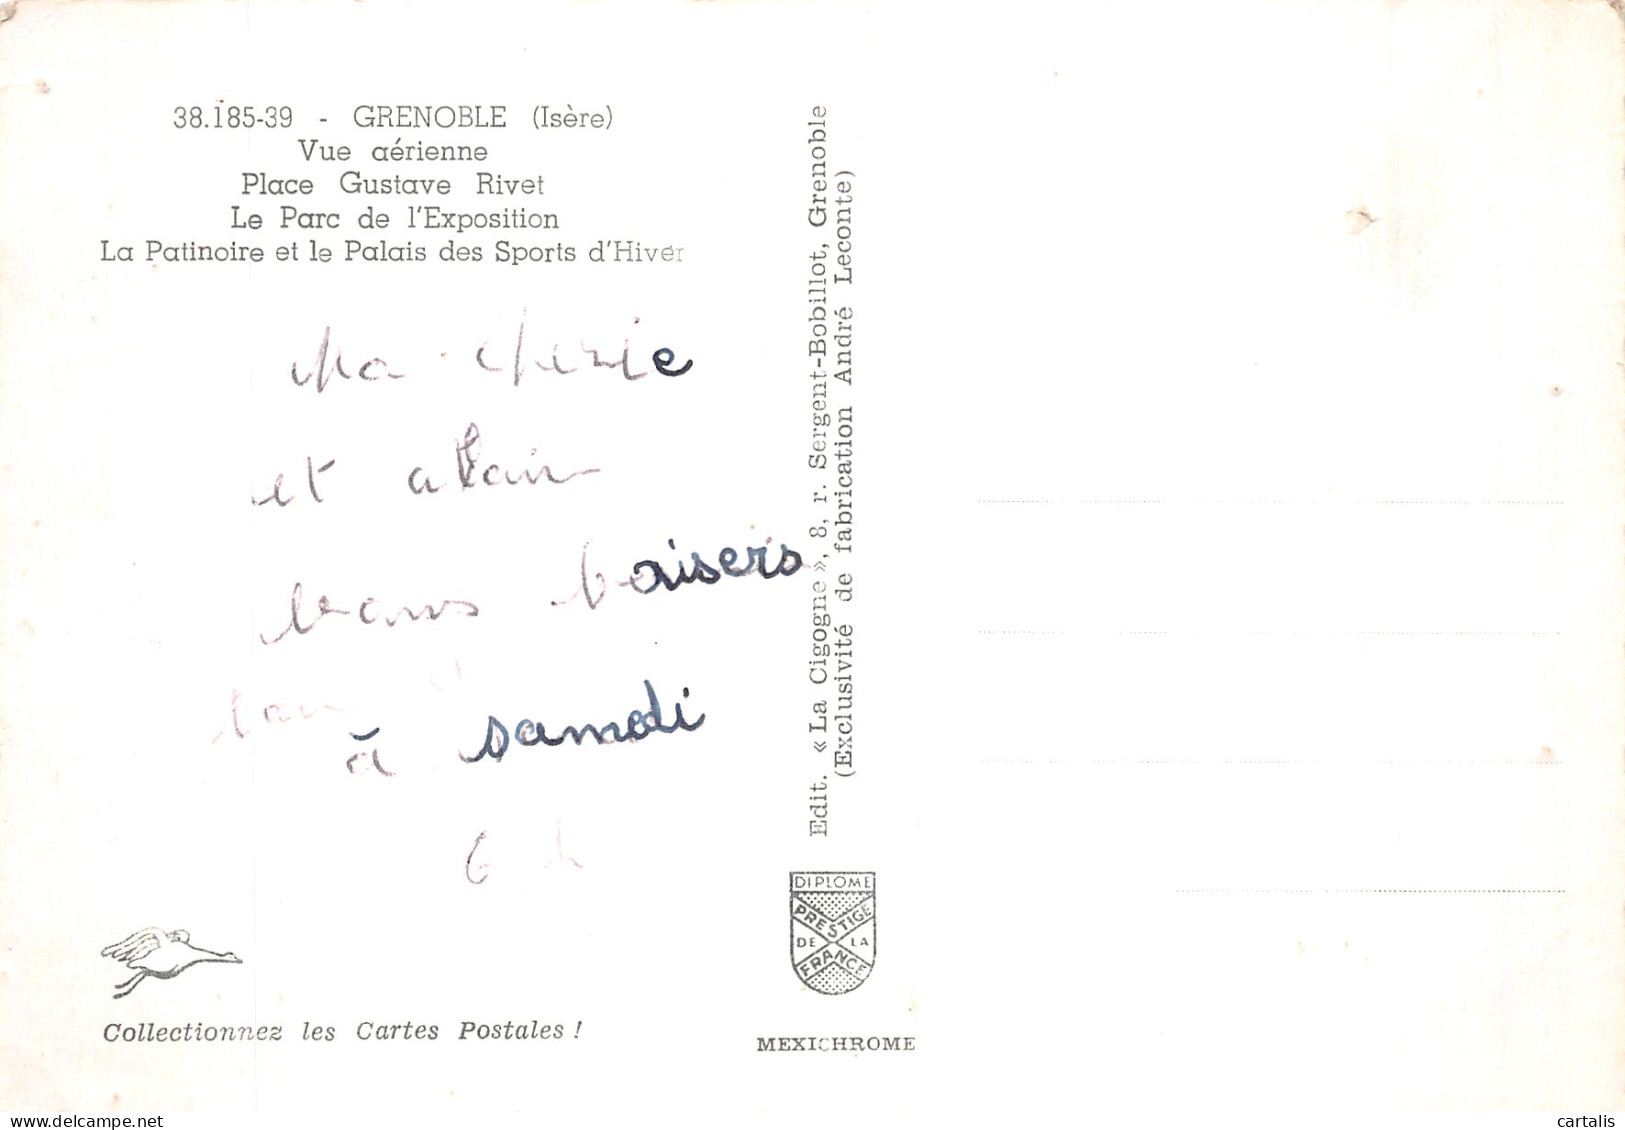 38.185-39 - GRENOBLE (Isère)
Vue aérienne
Place Gustave Rivet
Le Parc de l'Exposition
La Patinoire et le Palais des Sports d'Hiver
Ma cherie
et alain
bons baisers
à samedi
Edit. « La Cigogne », 8, r. Sergent-Bobillot, Grenoble
(Exclusivité de fabrication André Leconte)
DIPLOME
PRESTIGE
DE LA
FRANCE
Collectionnez les Cartes Postales !
MEXICHROME
cartalis